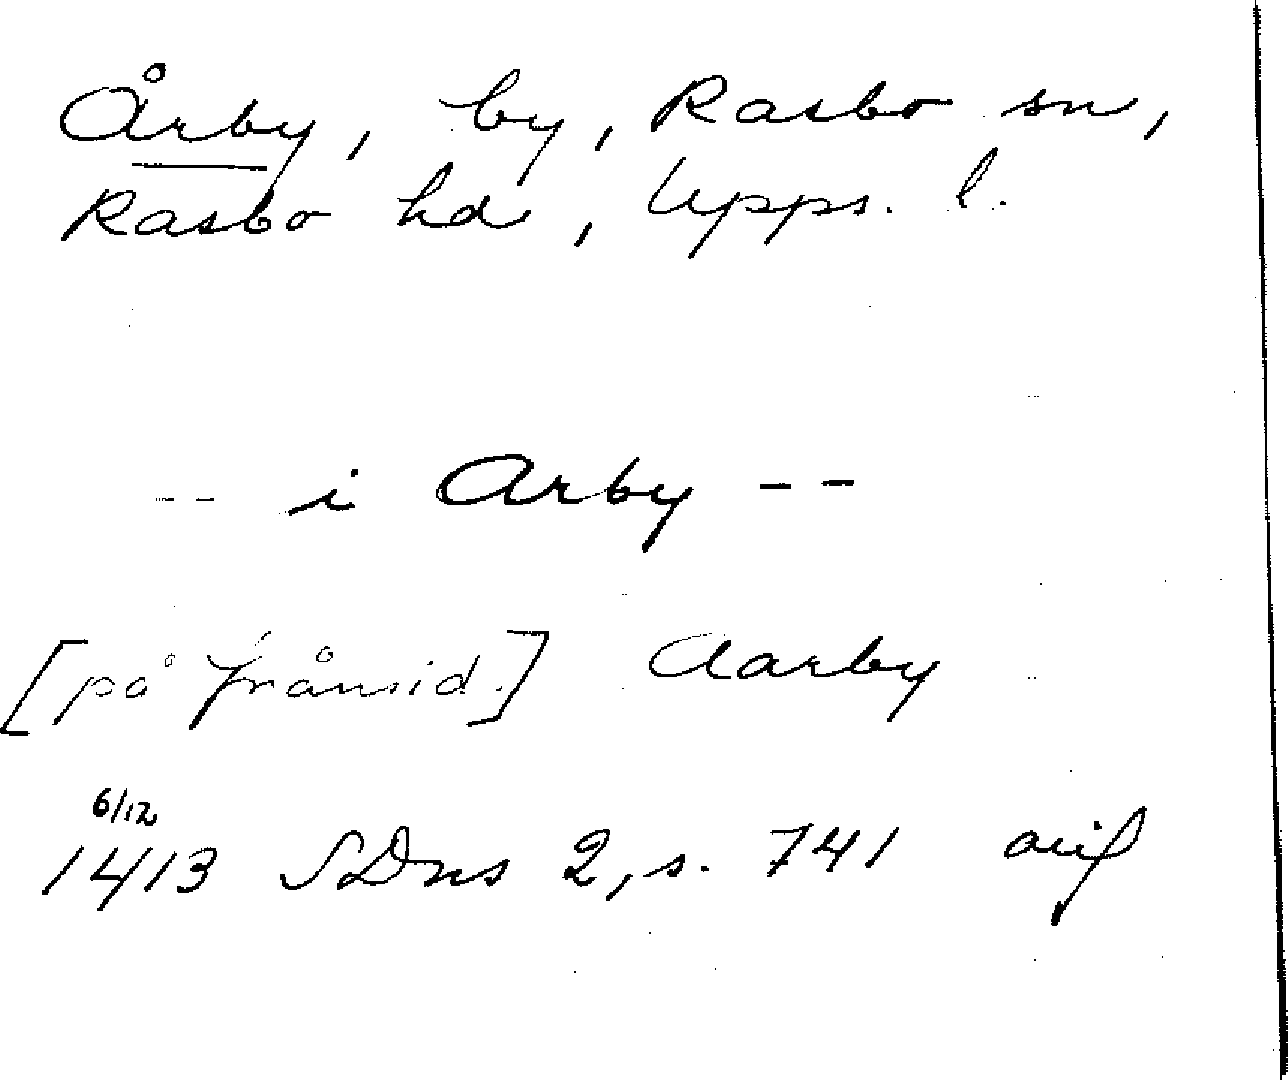 Årby, by, Rasbo sn,
Rasbo hd, Upps. l.
-- i Arby --
[på frånsid.] Aarby
6/12
1413 SDns 2, s. 741 avif